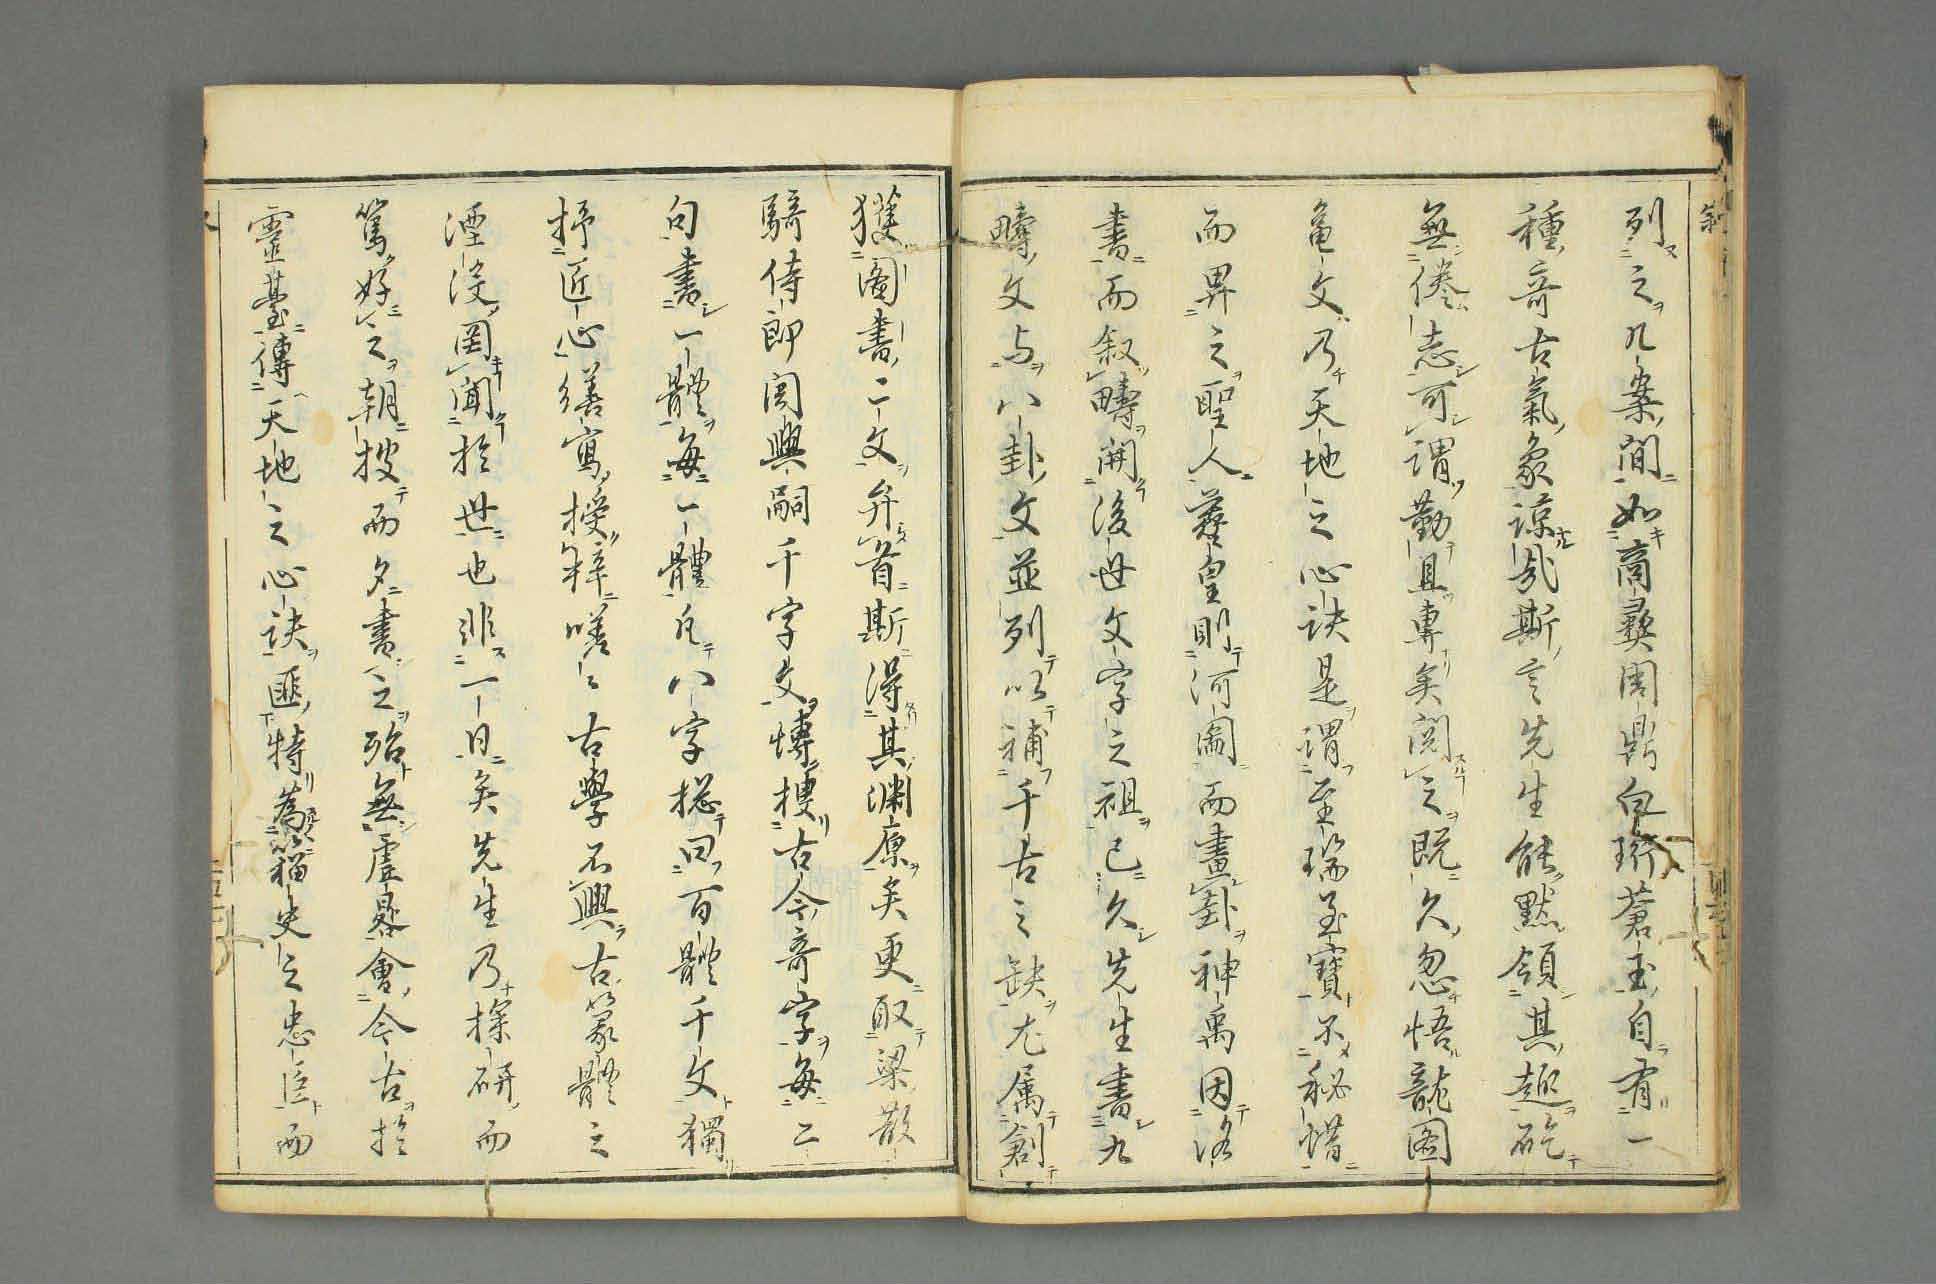 列之几案間如商彝周鼎白珩蒼玉自有一
種奇古氣象諒哉斯言先生能默領其趣矻
無倦志可謂勤且專矣閱之既久忽悟龍图
龜文乃天地之心訣是謂至瑞至寶不秘惜
而畀之聖人羲皇則河圖而畫卦神禹因洛
書而叙疇開後世文字之祖已久先生書九
疇文与八卦文並列以補千古之缺尤属創
獲圖書二文弁首斯得其渊原矣更取梁散
騎侍郎周興嗣千字文博搜古今奇字每二
句書一體每一體凡八字捴曰百體千文獨
抒匠心繕寫授梓嗟〻古學不興古篆體之
湮没罔聞於世也非一日矣先生乃探研而
篤好之朝搜而夕書之殆無虛晷會今古於
靈臺傳天地之心訣匪特為籀史之忠臣而